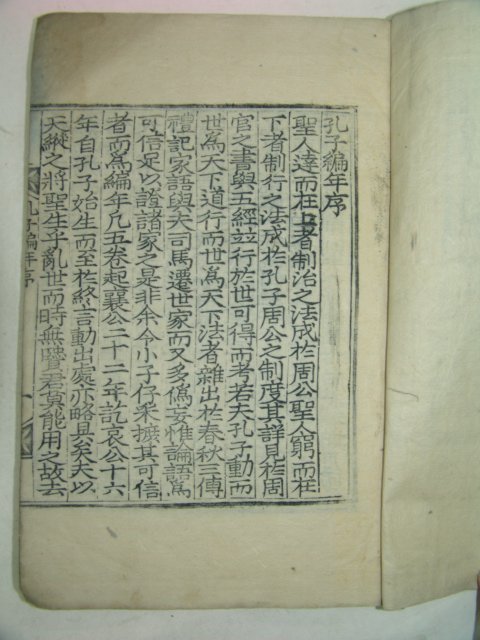 孔子編年序
聖人達而在上者制治之法成於周公聖人窮而在
下者制行之法成於孔子周公之制度其詳見於周
官之書與五經並行於世可得而考若夫孔子動而
世為天下道行而世為天下法者雜出於春秋三傳
禮記家語與夫司馬遷世家而又多偽妄惟論語為
可信足以證諸家之是非余令小子仔采摭其可信
者而為編年凡五卷起襄公二十二年訖哀公十六
年自孔子始生而至於終言動出處亦略具矣夫以
天縱之將聖生乎亂世而時無賢君莫能用之故去
孔子編年序
一